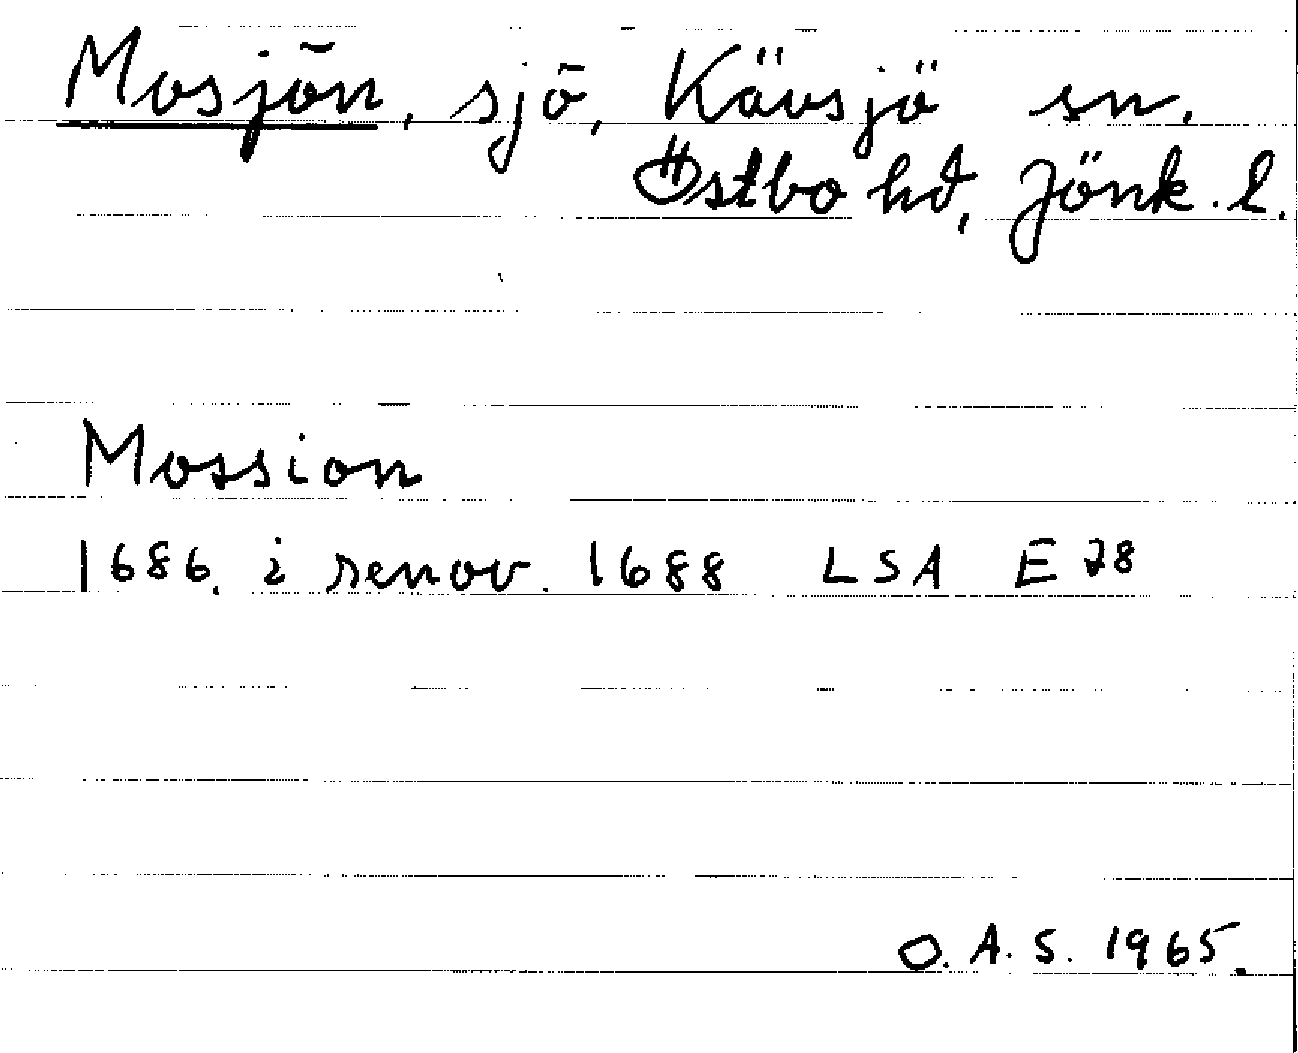 Mosjön, sjö, Kävsjö sn.
Östbo hd, Jönk. l.
Mossion
1686. i renov. 1688 LSA E 28
O. A. S. 1965.